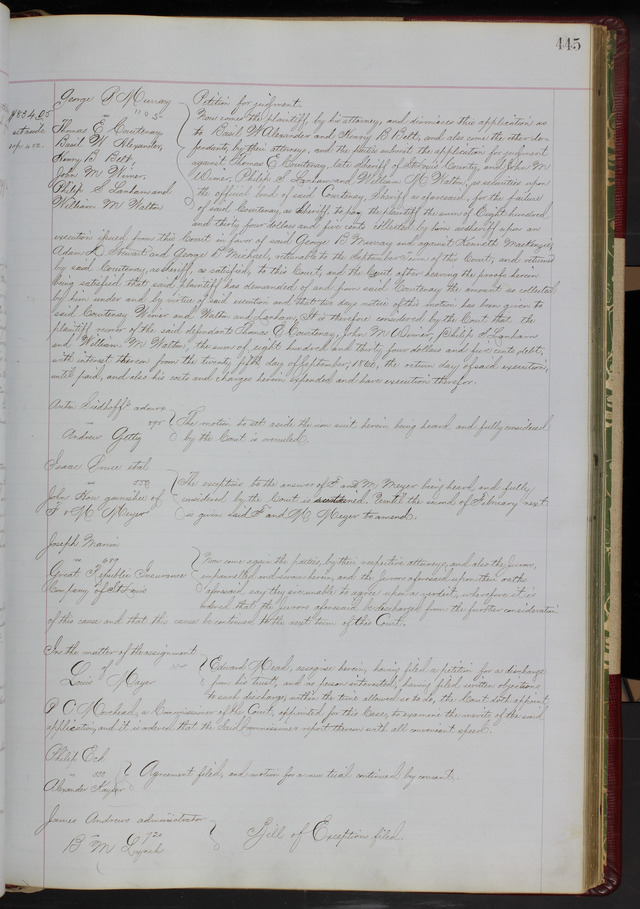 445
George B Murray
vs
Thomas E Courtenay,
Basil W Alexander,
Henry B Belt,
John M Wimer,
Philip S Lanham and
William M Walton
$834.05
set aside
Petition for judgment.
Now comes the plaintiff by his attorney, and dismisses this application as
to Basil W Alexander and Henry B Belt, and also come the other de-
fendants by their attorney, and the parties submit the application for judgment
against Thomas E Courtenay, late sheriff of St Louis County, and John M
Wimer, Philip S Lanham and, William M Walton, as securities upon
the official bond of said Courtenay, Sheriff as aforesaid, for the failure
of said Courtenay, as Sheriff to pay the plaintiff the sum of Eight hundred
and thirty four dollars and five cents collected by him as sheriff upon an
execution issued from this Court in favor of said George B Murray and against Kenneth Mackenzie,
Adam H. Stewart and George D Michael, returnable to the September term of this Court, and returned
by said Courtenay, as sheriff, as satisfied, to this Court, and the Court after hearing the proofs herein
being satisfied that said plaintiff has demanded of and from said Courtenay the amount so collected
by him under and by virtue of said execution and that ten days notice of this motion has been given to
said Courtenay Wimer and Walton and Lanham, It is therefore considered by the Court that the
plaintiff recover of the said defendants Thomas E Courtenay, John M Wimer, Philip S Lanham
and William M Walton, the sum of eight hundred and thirty four dollars and five cents debt,
with interest thereon from the twenty fifth day of September, 1860, the return day of said execution,
until paid, and also his costs and charges herein expended and have execution therefor.
vs
Andrew Getty
The motion to set aside the non suit herein being heard and fully considered
by the Court is overruled.
Isaac et al
550
John How garnishee of
F & M Meyer
The exception to the answer of F and M Meyer being heard and fully
considered by the Court is sustained. Until the second of February next
is given said F and M Meyer to amend.
Joseph
Great Republic Insurance
Company of St Louis
Now come again the parties, by their respective attorneys, and also the Jurors,
impannelled and sworn herein, and the Jurors aforesaid upon their oaths
aforesaid say they are unable to agree upon a verdict, wherefore it is
ordered that the Jurors aforesaid be discharged from the further consideration
of this cause and that the cause be continued to the next term of this Court.
In the matter of the assignment
of
Louis Meyer
Edward Mead, assignee herein, having filed a petition for a discharge
from his trust, and no person interested, having filed written objections
to such discharge, within the time allowed so to do, the Court doth appoint
P C Morehead, a Commissioner of the Court, appointed for this Case, to examine the merits of the said
application, and it is ordered that the Said Commissioner report thereon with all convenient speed.
Philip Eck
Alexander Kayser
Agreement filed, and motion for a new trial continued by consent.
James Andrews administrator
920
B M Lynch
Bill of Exceptions filed.